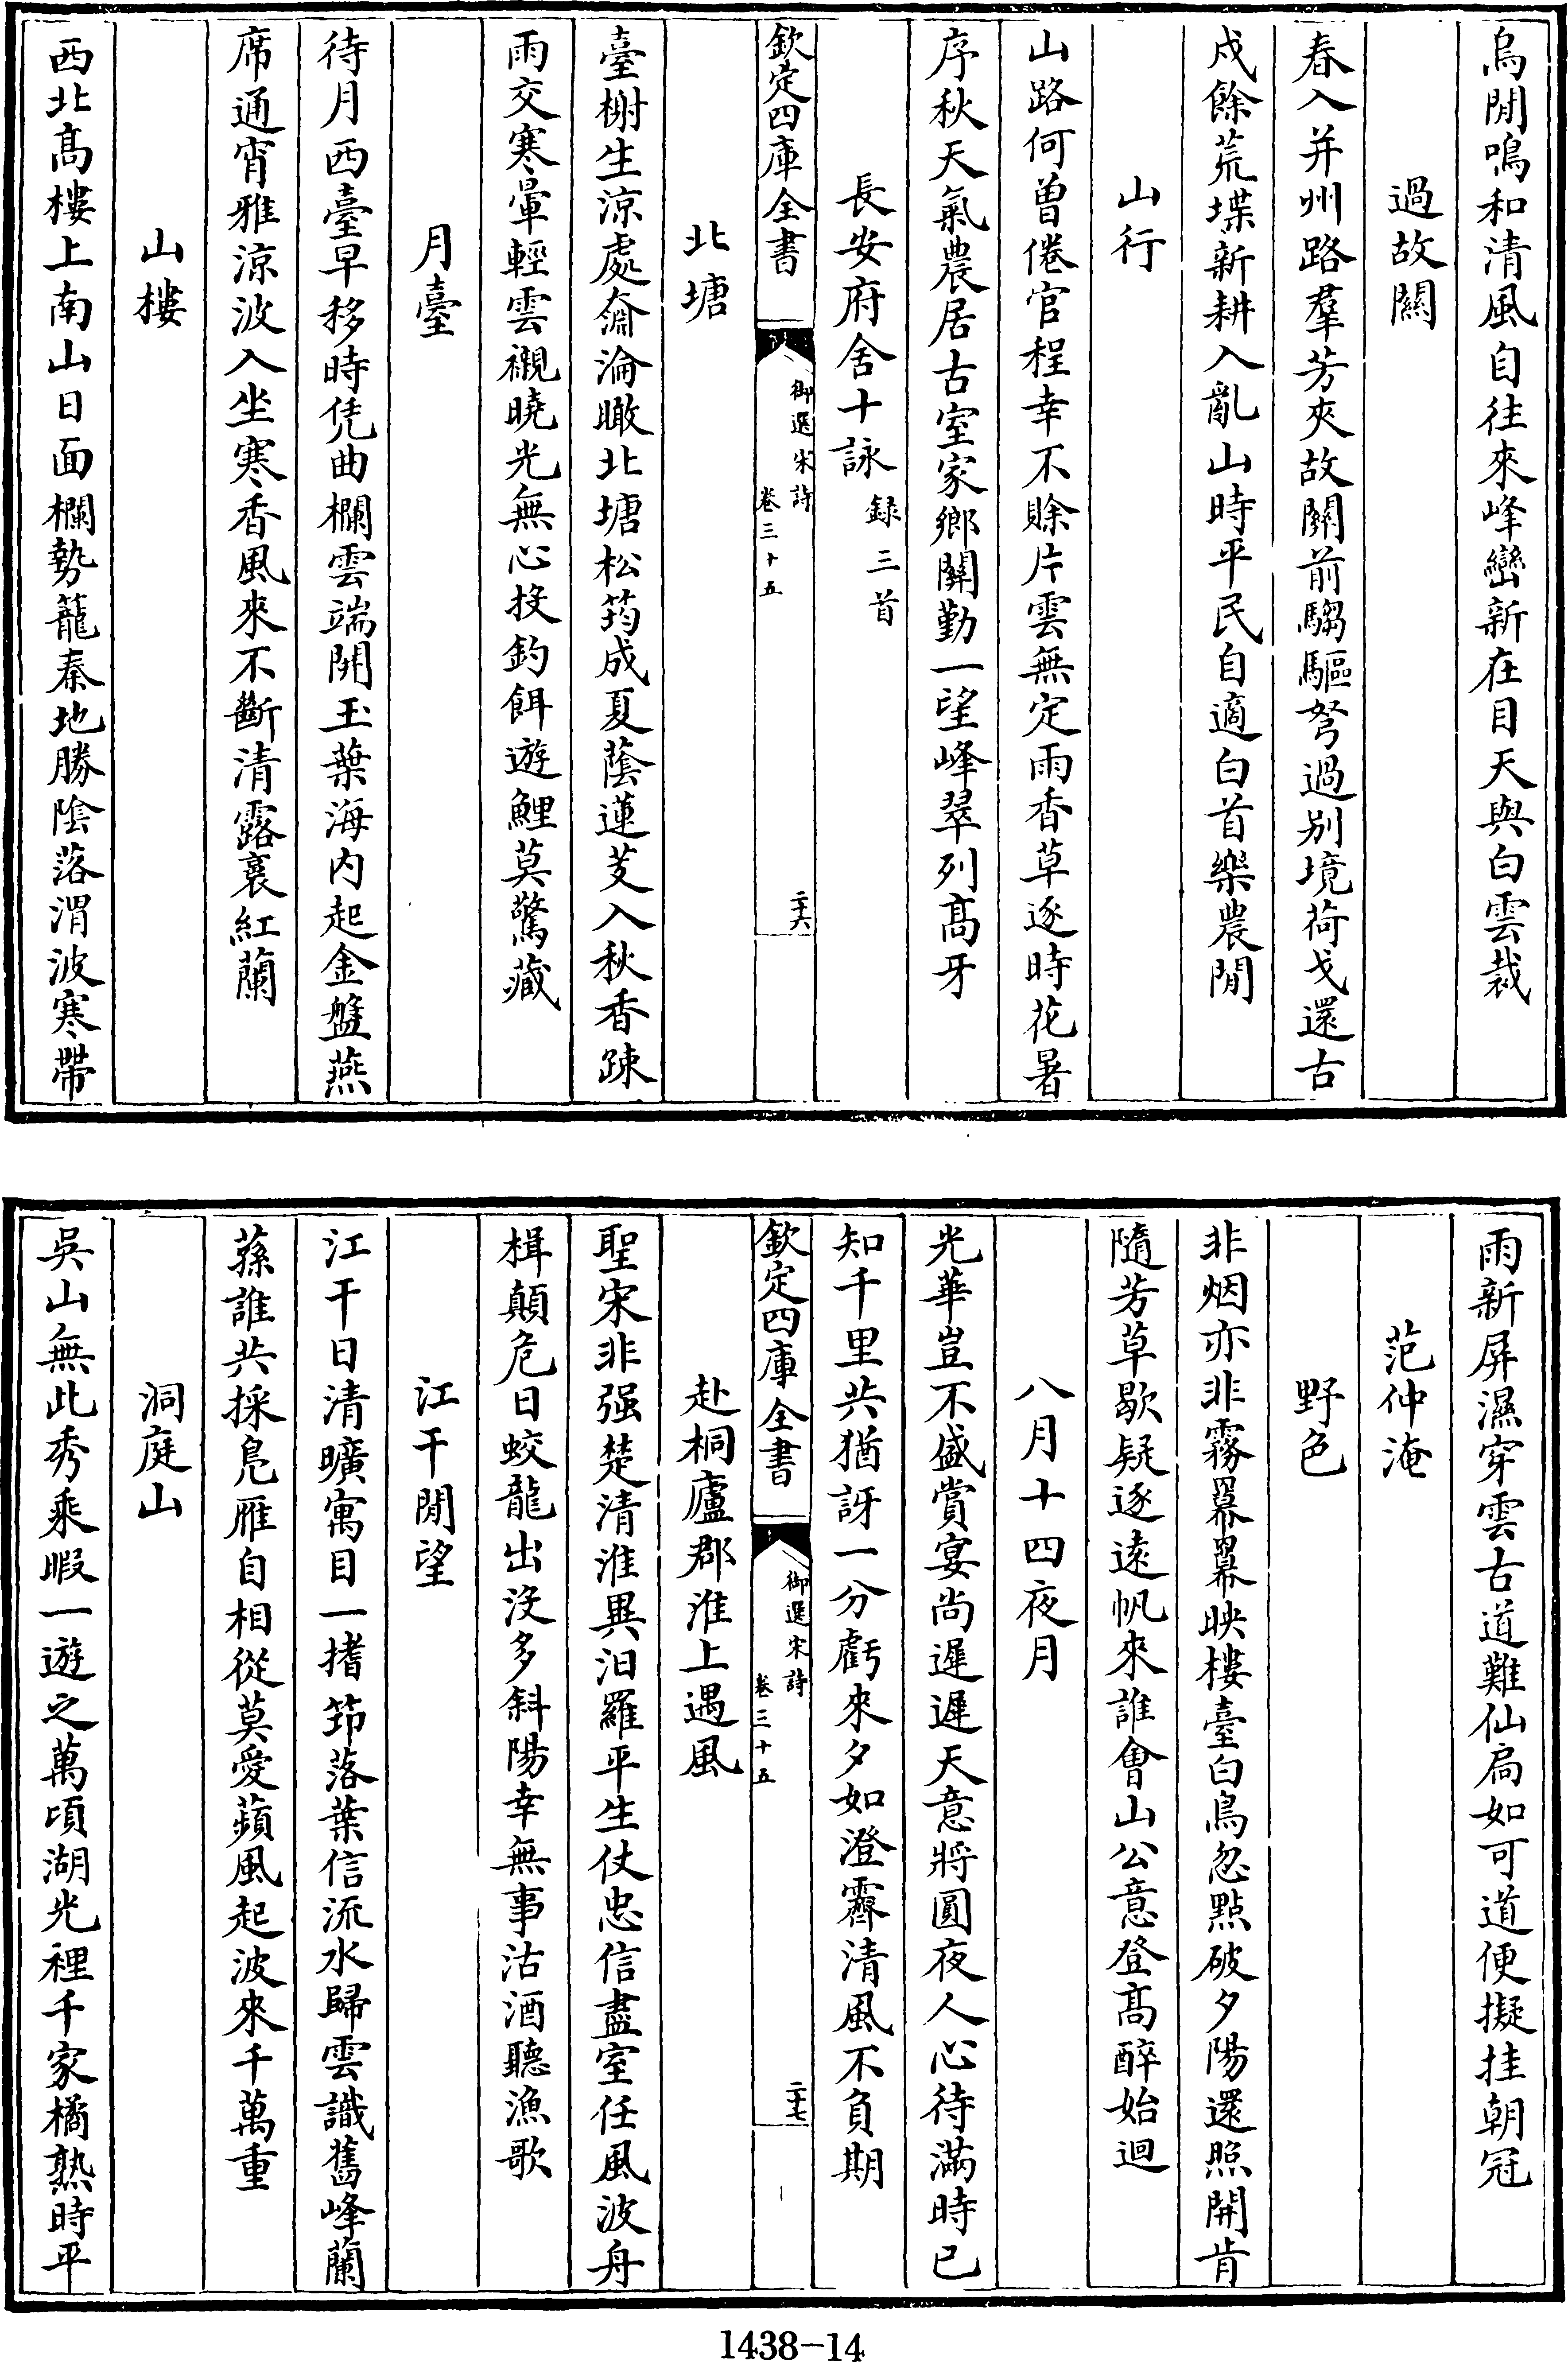 鳥閒鳴和清風自往來峰巒新在目天與白雲裁
過故關
春入并州路羣芳夾故關前騶驅弩過别境荷戈還古
戍餘荒堞新耕入亂山時平民自適白首樂農閒
山行
山路何曽倦官程幸不賖片雲無定雨香草逐時花暑
序秋天氣農居古室家鄉關勤一望峰翠列髙牙
長安府舍十詠錄三首
欽定四庫全書
御選宋詩
卷三十五
二十六
北塘
臺榭生涼處奫淪瞰北塘松筠成夏蔭蓮芰入秋香踈
雨交寒暈輕雲襯曉光無心投釣餌遊鯉莫驚藏
月臺
待月西臺早移時凭曲欄雲端開玉葉海内起金盤燕
席通宵雅涼波入坐寒香風來不斷清露裛紅蘭
山樓
西北髙樓上南山日面欄勢籠秦地勝陰落渭波寒帶
雨新屏濕穿雲古道難仙扃如可道便擬挂朝冠
范仲淹
野色
非烟亦非霧羃羃映樓臺白鳥忽點破夕陽還照開肯
隨芳草歇疑逐遠帆來誰會山公意登髙醉始迴
八月十四夜月
光華豈不盛賞宴尚遲遲天意將圓夜人心待滿時已
知千里共猶訝一分虧來夕如澄霽清風不負期
欽定四庫全書
御選宋詩
卷三十五
二十七
赴桐廬郡淮上遇風
聖宋非强楚清淮異汨羅平生仗忠信盡室任風波舟
楫顛危日蛟龍出沒多斜陽幸無事沽酒聽漁歌
江干閒望
江干日清曠寓目一搘笻落葉信流水歸雲識舊峰蘭
蓀誰共採鳬雁自相從莫愛蘋風起波來千萬重
洞庭山
吳山無此秀乘暇一遊之萬頃湖光裡千家橘熟時平
1438-14